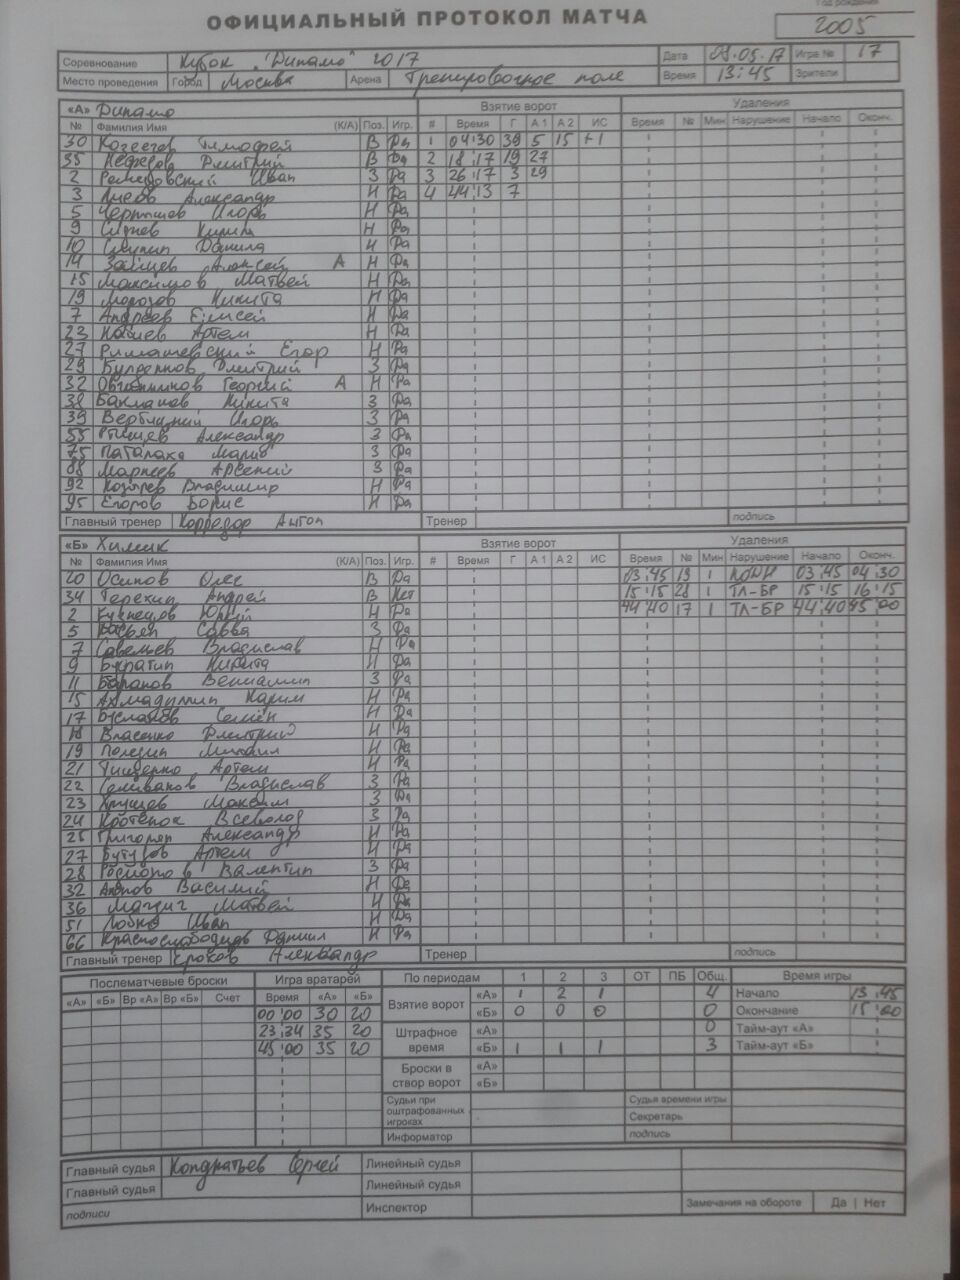 Год рождения
ОФИЦИАЛЬНЫЙ ПРОТОКОЛ МАТЧА
2005
Соревнование Кубок "Динамо" 2017 Дата 09.05.17 Игра № 17
Место проведения Город Москва Арена Тренировочное поле Время 13:45 Зрители
«А» Динамо Взятие ворот Удаления
№ Фамилия Имя (К/А) Поз. Игр. # Время Г А 1 А 2 ИС Время № Мин Нарушение Начало Оконч.
30 Тимофей В Да 1 04:30 39 5 15 +1
35 Дмитрий В Да 2 18:17 19 27
2 Иван З Да 3 26:17 3 29
3 Александр Н Да 4 44:13 7
5 Чернышев Игорь Н Да
9 Кирилл Н Да
10 Данила Н Да
14 Зайцев Алексей А Н Да
15 Максимов Матвей Н Да
19 Морозов Никита Н Да
7 Андреев Елисей Н Да
23 Артем Н Да
27 Римашевский Егор Н Да
29 Дмитрий З Да
32 Овчинников Георгий А Н Да
38 Бакланов Никита З Да
39 Игорь З Да
55 Александр З Да
75 З Да
88 Арсений З Да
92 Владимир Н Да
95 Егоров Борис Н Да
Главный тренер Антон Тренер подпись
«Б» Химик Взятие ворот Удаления
№ Фамилия Имя (К/А) Поз. Игр. # Время Г А 1 А 2 ИС Время № Мин Нарушение Начало Оконч.
20 Осипов Олег В Да 03:45 19 1 03:45 04:30
34 Терехин Андрей В Нет 15:15 28 1 ТЛ-БР 15:15 16:15
2 Кузнецов Юрий Н Да 44:40 17 1 ТЛ-БР 44:40 45:00
5 Савва З Да
7 Савельев Владислав Н Да
9 Никита Н Да
11 Баранов Вениамин З Да
15 Карим Н Да
17 Буслаев Семён Н Да
18 Власенко Дмитрий Н Да
19 Михаил Н Да
21 Тищенко Артем Н Да
22 Селиванов Владислав З Да
23 Хрущев Максим З Да
24 Кротенок Всеволод З Да
25 Григорян Александр Н Да
27 Бутузов Артем Н Да
28 Валентин З Да
32 Василий Н Да
36 Матвей Н Да
51 Иван Н Да
66 Краснослободцев Даниил Н Да
Главный тренер Александр Тренер подпись
Послематчевые броски Игра вратарей По периодам 1 2 3 ОТ ПБ Общ. Время игры
«А» «Б» Вр «А» Вр «Б» Счет Время «А» «Б» Взятие ворот «А» 1 2 1 4 Начало 13:45
00:00 30 20 «Б» 0 0 0 0 Окончание 15:00
23:34 35 20 Штрафное время «А» 0 Тайм-аут «А»
45:00 35 20 «Б» 1 1 1 3 Тайм-аут «Б»
Броски в створ ворот «А»
«Б»
Судьи при оштрафованных игроках Судья времени игры
Секретарь
Информатор подпись
Главный судья Кондратьев Сергей Линейный судья
Главный судья Линейный судья
подписи Инспектор Замечания на обороте Да | Нет